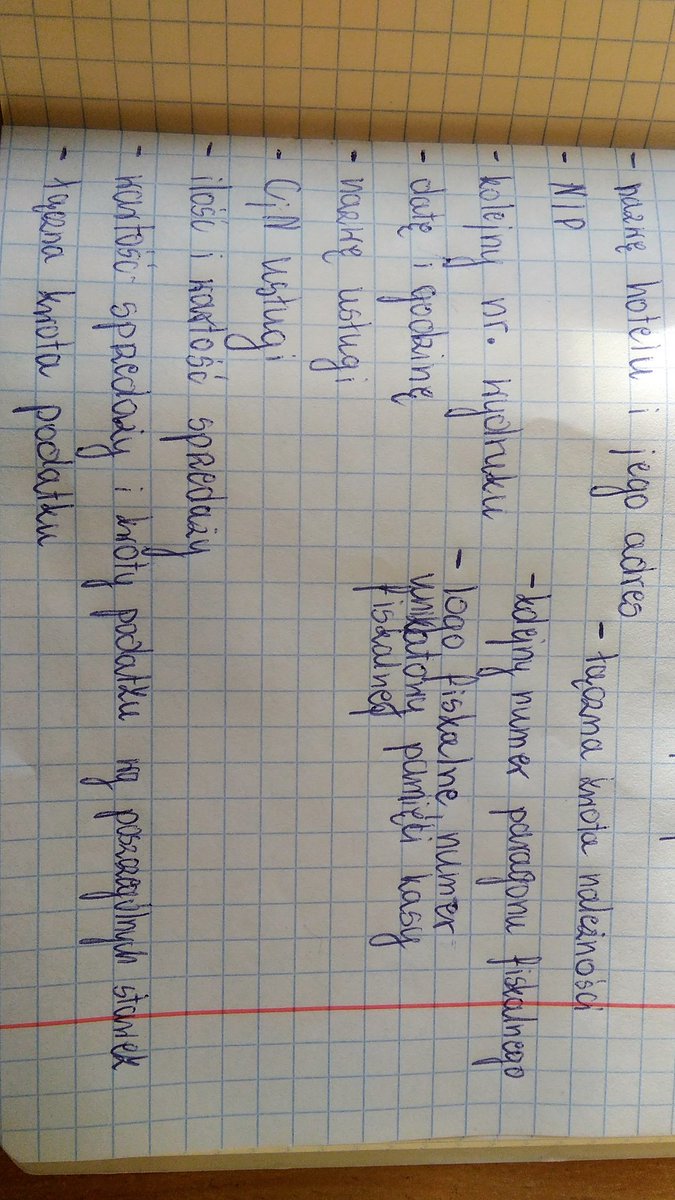 - nazwę hotelu i jego adres
- NIP
- kolejny nr. wydruku
- datę i godzinę
- nazwę usługi
- CjN usługi
- ilość i wartość sprzedaży
- wartość sprzedaży i kwoty podatku wg poszczególnych stawek
- łączna kwota podatku
- łączna kwota należności
- kolejny numer paragonu fiskalnego
- logo fiskalne, numer
unikatowy pamięci kasy
fiskalnej